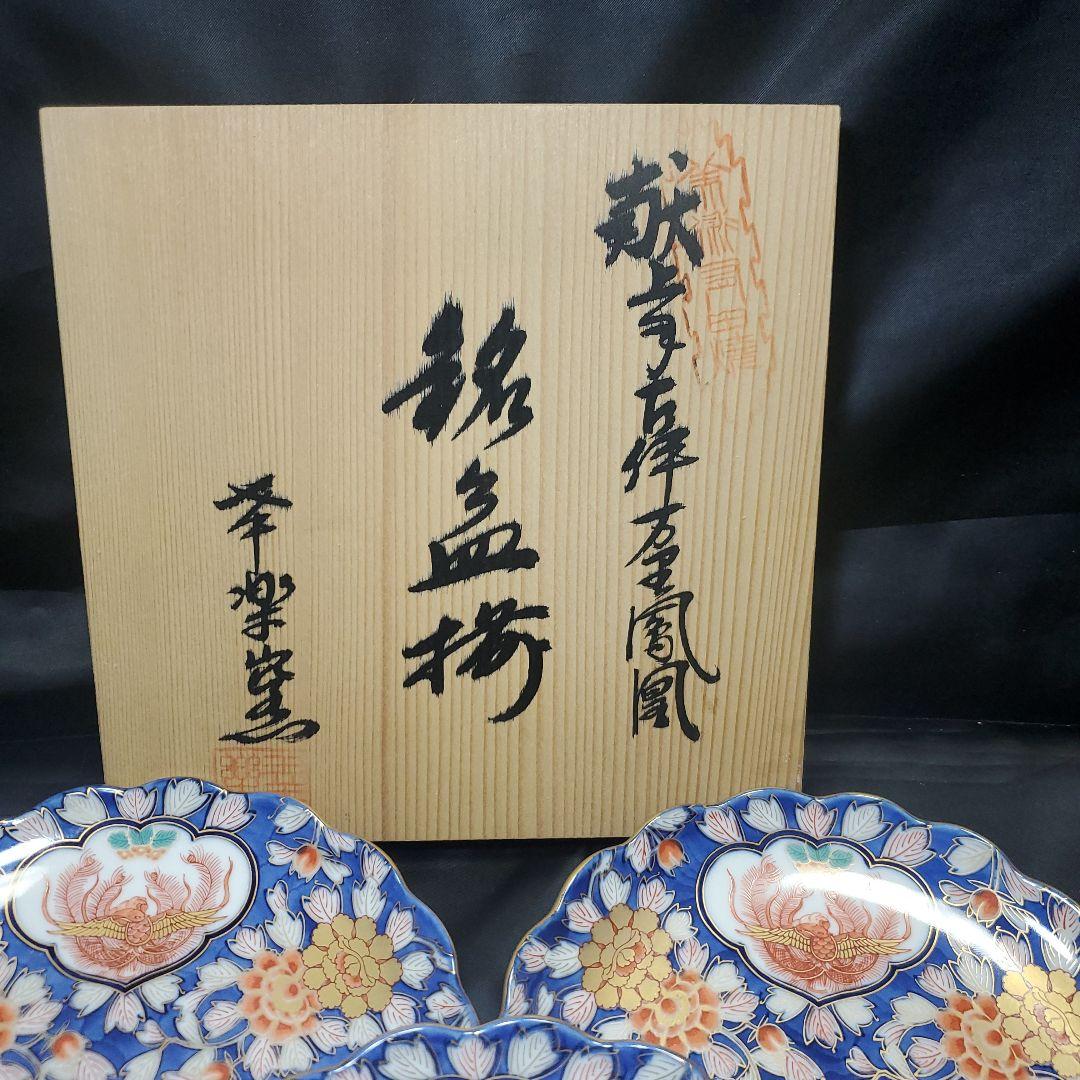 献上手古伊万里鳳凰
銘々皿揃
華楽窯